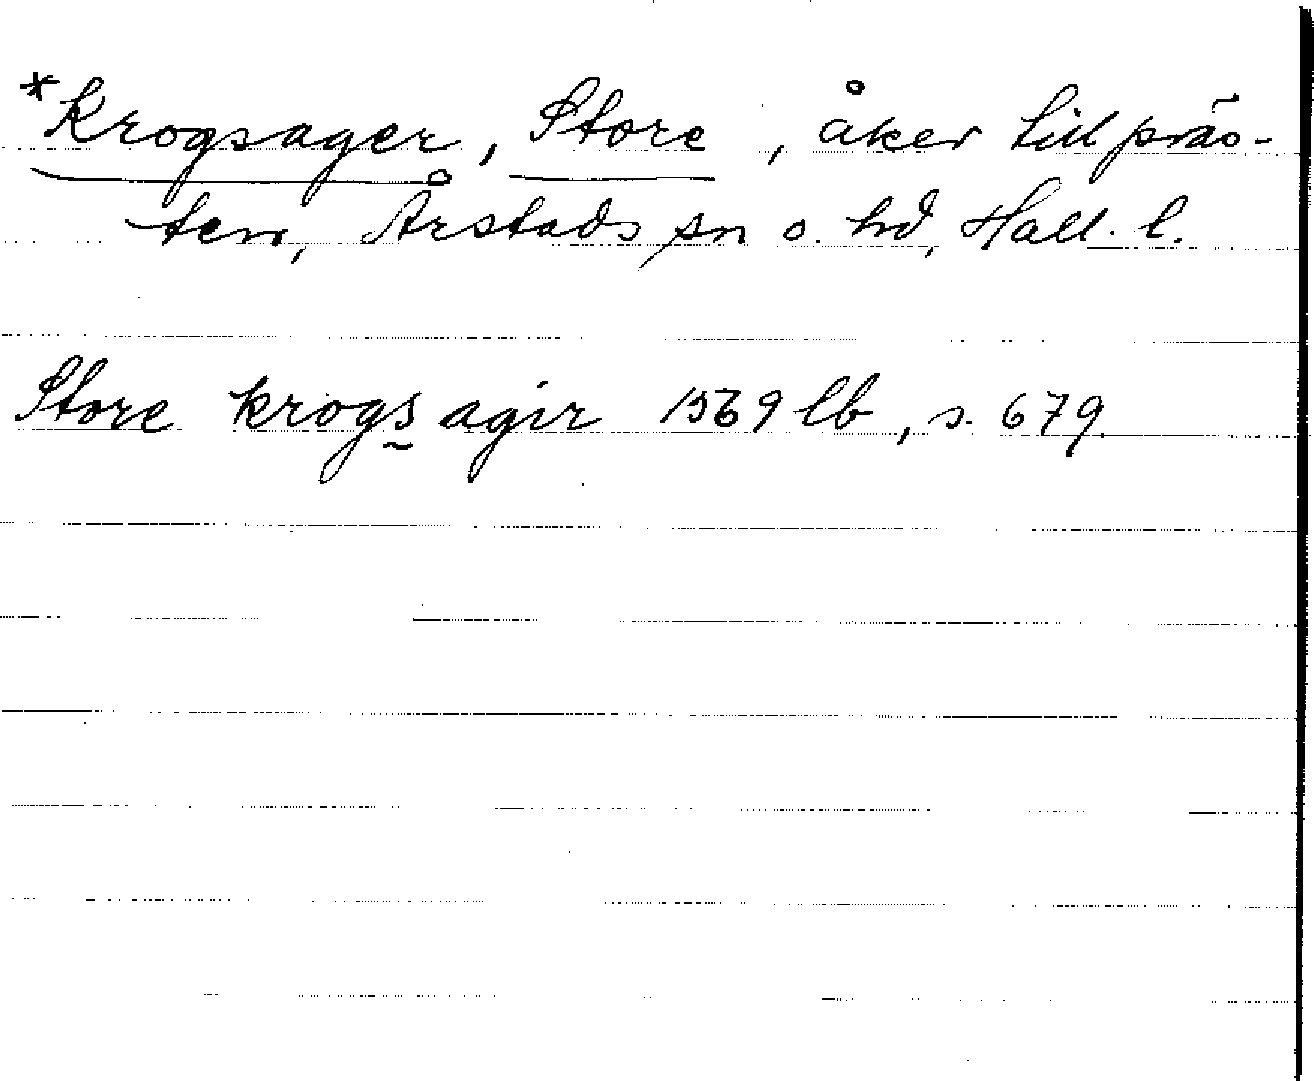 *Krogsager, Store, åker till präs-
ten, Årstads sn o. hd, Hall. l.
Store krogs agir 1569 lb, s. 679